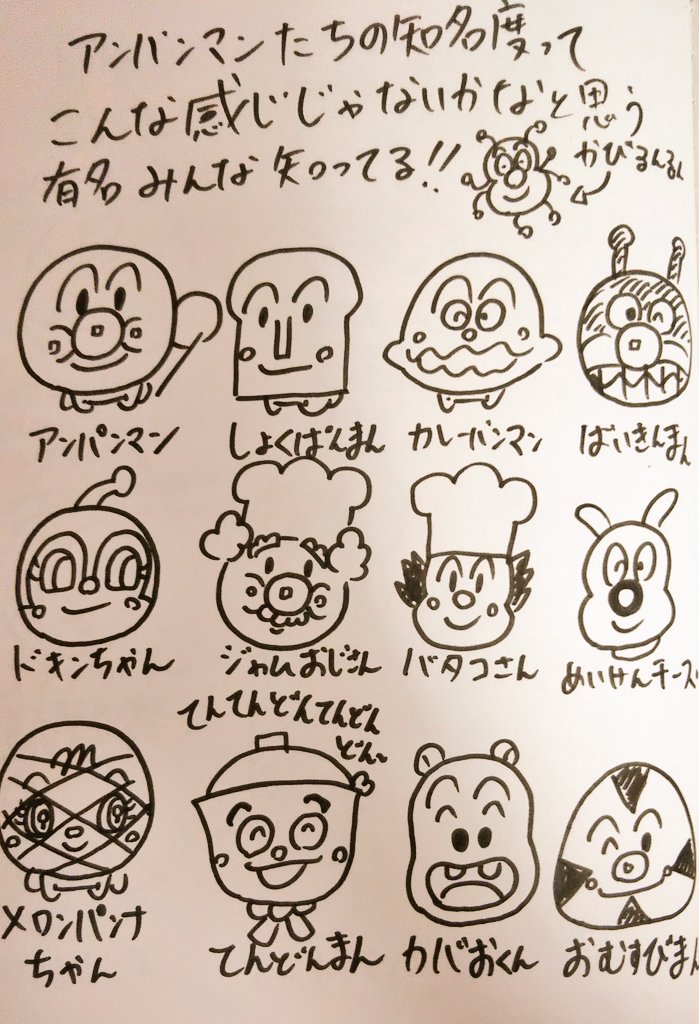 アンパンマンたちの知名度って
こんな感じじゃないかなと思う
有名みんな知ってる!!
かびるんるん
アンパンマン
しょくぱんまん
カレーパンマン
ばいきんまん
ドキンちゃん
ジャムおじさん
バタコさん
めいけんチーズ
てんてんどんてんどん
どん〜
メロンパンナ
ちゃん
てんどんまん
カバおくん
おむすびまん